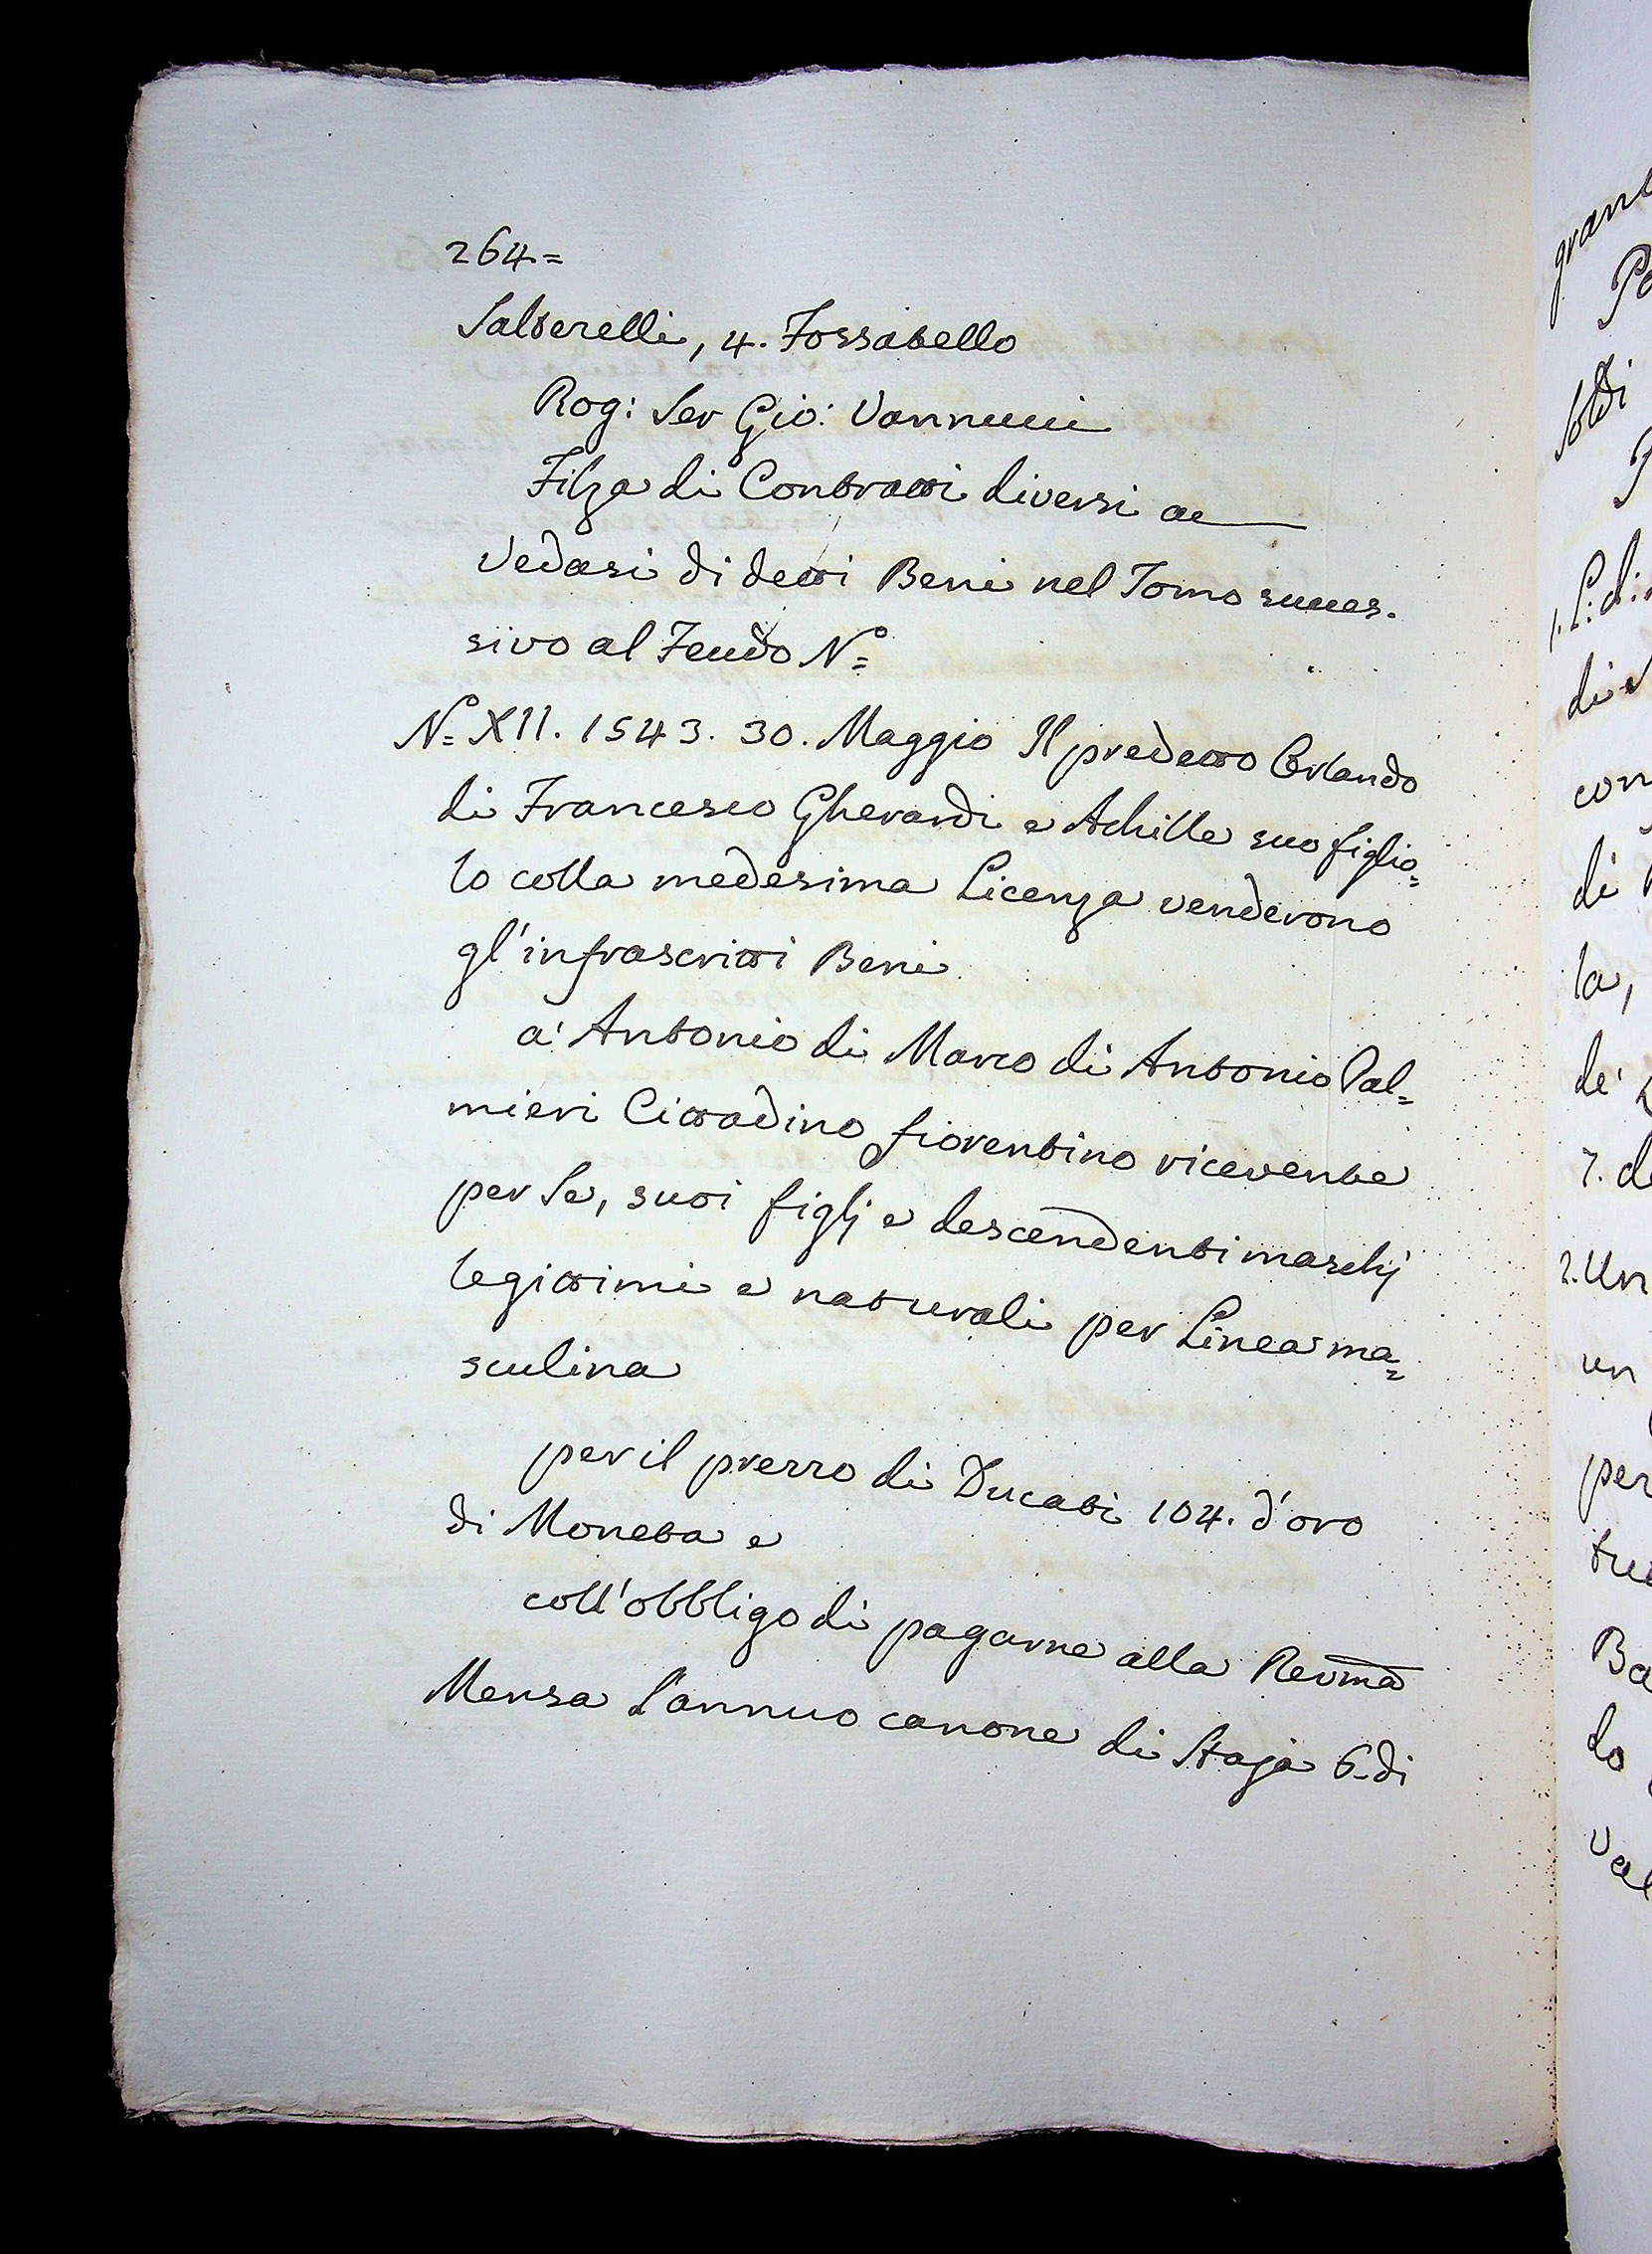 264=
Salterelli, 4. Fossatello
Rog: Ser Gio: Vannucci
Filza di Contratti diversi ac
Vedasi di detti Beni nel Tomo succes-
sivo al Feudo N.º
N.º XII. 1543. 30. Maggio Il predetto Orlando
di Francesco Gherardi e Achille suo figlio=
lo colla medesima Licenza venderono
gl'infrascritti Beni
a' Antonio di Marco di Antonio Pal=
mieri Cittadino fiorentino ricevente
per Se, suoi figlj e descendenti maschj
legittimi e naturali per Linea ma=
sculina
per il prezzo di Ducati 104. d'oro
di Moneta e
coll'obbligo di pagarne alla Revma
Mensa l'annuo canone di Staja 6. di
Soldi
1. L: di:
di
con
di
la,
de'
7. d
2. Un
un
per
Ba
lo